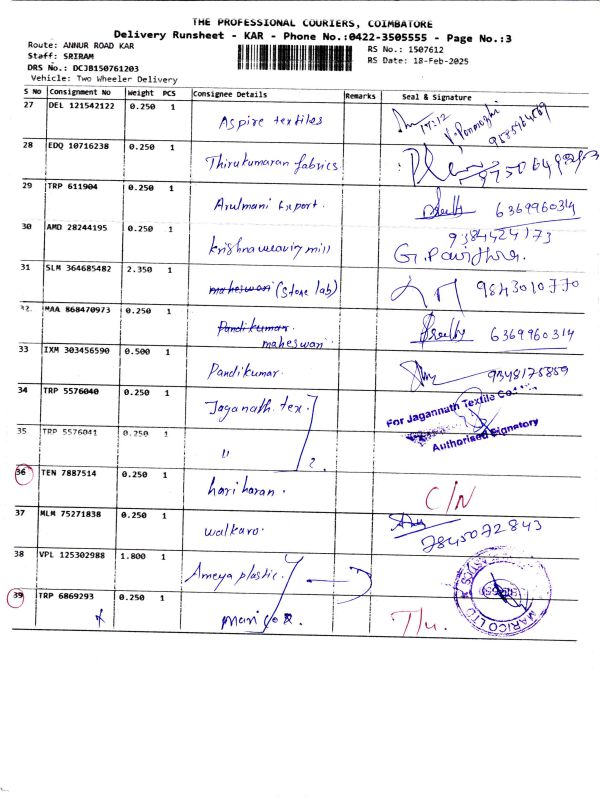 THE PROFESSIONAL COURIERS, COIMBATORE
Delivery Runsheet - KAR - Phone No.:0422-3505555 - Page No.:3
Route: ANNUR ROAD KAR
RS No.: 1507612
Staff: SRIRAM
RS Date: 18-Feb-2025
DRS No.: DCJB150761203
Vehicle: Two Wheeler Delivery
S No Consignment No Weight PCS Consignee Details Remarks Seal & Signature
27 DEL 121542122 0.250 1 Aspire textiles
28 EDQ 10716238 0.250 1 Thirukumaran fabrics
29 TRP 611904 0.250 1 Arulmani Export. 6369960314
30 AMD 28244195 0.250 1 krishna weaving mill 9384424173
G. Pavithra.
31 SLM 364685482 2.350 1 maheswari (Stone lab) 9843010770
32. MAA 868470973 0.250 1 Pandikumar. 6369960314
maheswari.
33 IXM 303456590 0.500 1 Pandikumar. 9348175859
34 TRP 5576040 0.250 1 Jaganath. tex.
For Jagannath Textile
35 TRP 5576041 0.250 1 "
Authorised Signatory
36 TEN 7887514 0.250 1 hariharan. C/N
37 MLM 75271838 0.250 1 walkaro. 7845072843
38 VPL 125302988 1.800 1 Ameya plastic.
39 TRP 6869293 0.250 1
MARICO LTD